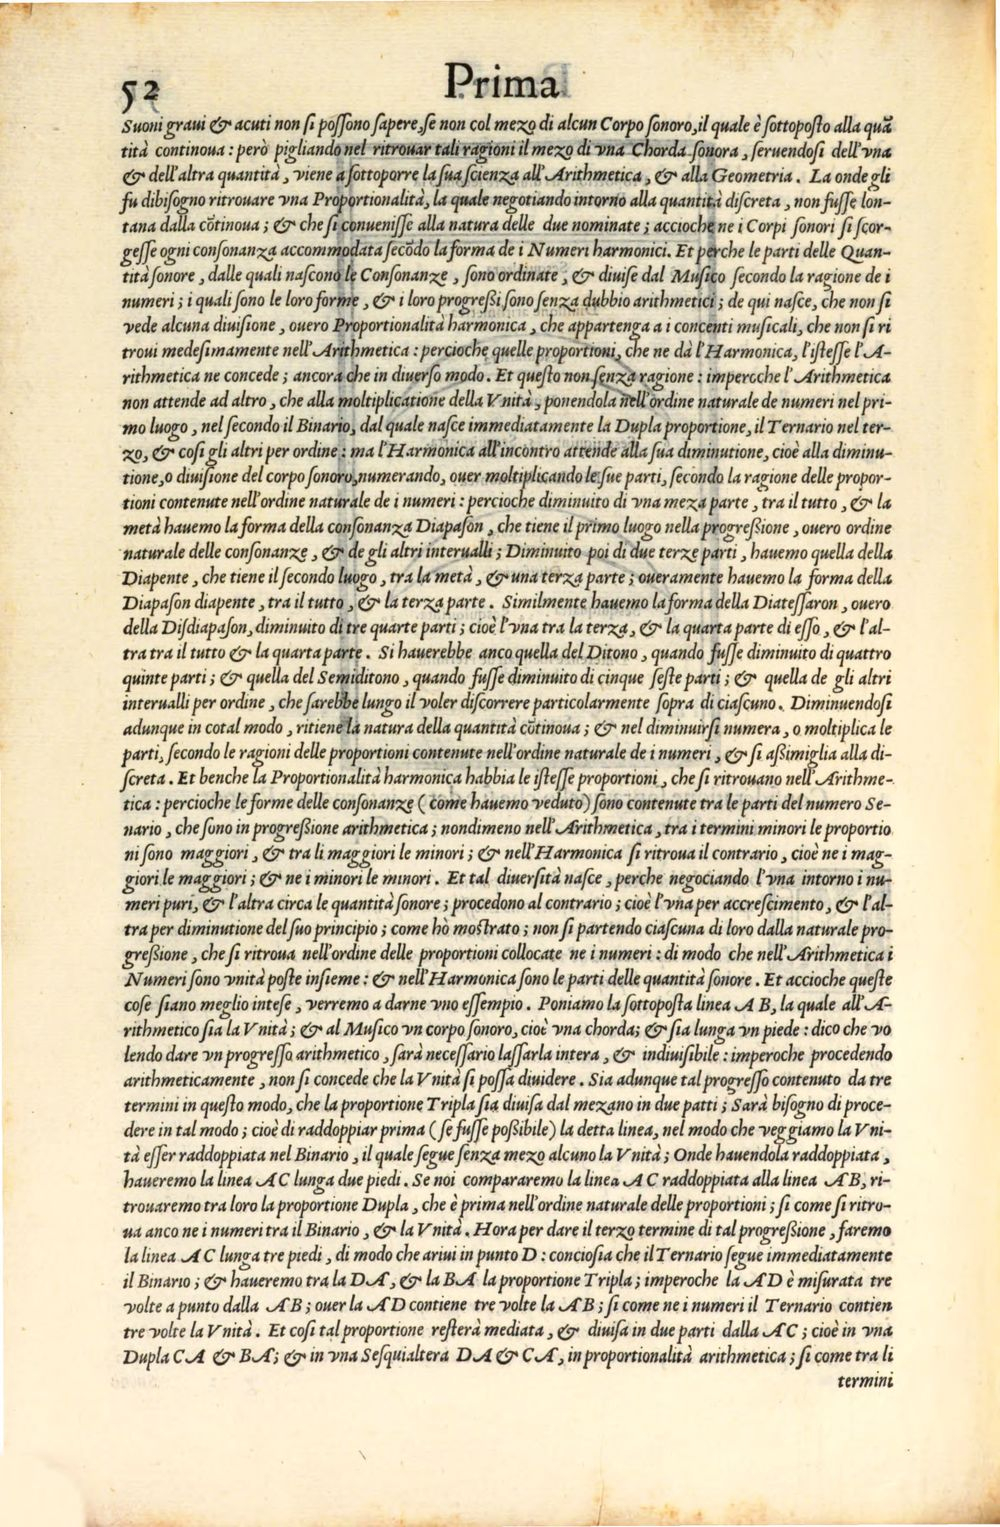 52 Prima
Suoni graui & acuti non ſi poſſono ſapere, ſe non col mezo di alcun Corpo ſonoro, il quale è ſottopoſto alla quã
tità continoua: però pigliando nel ritrouar tali ragioni il mezo di vna Chorda ſonora, ſeruendoſi dell'vna
& dell'altra quantità, viene a ſottoporre la ſua ſcienza all'Arithmetica, & alla Geometria. La onde gli
fu dibiſogno ritrouare vna Proportionalità, la quale negotiando intorno alla quantità diſcreta, non fuſſe lon-
tana dalla cõtinoua; & che ſi conueniſſe alla natura delle due nominate; accioche ne i Corpi ſonori ſi ſcor-
geſſe ogni conſonanza accommodata ſecõdo la forma de i Numeri harmonici. Et perche le parti delle Quan-
tità ſonore, dalle quali naſcono le Conſonanze, ſono ordinate, & diuiſe dal Muſico ſecondo la ragione de i
numeri; i quali ſono le loro forme, & i loro progreßi ſono ſenza dubbio arithmetici; de qui naſce, che non ſi
vede alcuna diuiſione, ouero Proportionalità harmonica, che appartenga a i concenti muſicali, che non ſi ri
troui medeſimamente nell'Arithmetica: percioche quelle proportioni, che ne dà l'Harmonica, l'iſteſſe l'A-
rithmetica ne concede; ancora che in diuerſo modo. Et queſto non ſenza ragione: imperoche l'Arithmetica
non attende ad altro, che alla moltiplicatione della Vnità, ponendola nell'ordine naturale de numeri nel pri-
mo luogo, nel ſecondo il Binario, dal quale naſce immediatamente la Dupla proportione, il Ternario nel ter-
zo, & coſi gli altri per ordine: ma l'Harmonica all'incontro attende alla ſua diminutione, cioè alla diminu-
tione, o diuiſione del corpo ſonoro, numerando, ouer moltiplicando le ſue parti, ſecondo la ragione delle propor-
tioni contenute nell'ordine naturale de i numeri: percioche diminuito di vna meza parte, tra il tutto, & la
metà hauemo la forma della conſonanza Diapaſon, che tiene il primo luogo nella progreßione, ouero ordine
naturale delle conſonanze, & de gli altri interualli; Diminuito poi di due terze parti, hauemo quella della
Diapente, che tiene il ſecondo luogo, tra la metà, & una terza parte; oueramente hauemo la forma della
Diapaſon diapente, tra il tutto, & la terza parte. Similmente hauemo la forma della Diateſſaron, ouero
della Diſdiapaſon, diminuito di tre quarte parti; cioè l'vna tra la terza, & la quarta parte di eſſo, & l'al-
tra tra il tutto & la quarta parte. Si hauerebbe anco quella del Ditono, quando fuſſe diminuito di quattro
quinte parti; & quella del Semiditono, quando fuſſe diminuito di cinque ſeſte parti; & quella de gli altri
interualli per ordine, che ſarebbe lungo il voler diſcorrere particolarmente ſopra di ciaſcuno. Diminuendoſi
adunque in cotal modo, ritiene la natura della quantità cõtinoua; & nel diminuirſi numera, o moltiplica le
parti, ſecondo le ragioni delle proportioni contenute nell'ordine naturale de i numeri, & ſi aßimiglia alla di-
ſcreta. Et benche la Proportionalità harmonica habbia le iſteſſe proportioni, che ſi ritrouano nell'Arithme-
tica: percioche le forme delle conſonanze (come hauemo veduto) ſono contenute tra le parti del numero Se-
nario, che ſono in progreßione arithmetica; nondimeno nell'Arithmetica, tra i termini minori le proportio
ni ſono maggiori, & tra li maggiori le minori; & nell'Harmonica ſi ritroua il contrario, cioè ne i mag-
giori le maggiori; & ne i minori le minori. Et tal diuerſità naſce, perche negociando l'vna intorno i nu-
meri puri, & l'altra circa le quantità ſonore; procedono al contrario; cioè l'vna per accreſcimento, & l'al-
tra per diminutione del ſuo principio; come hò moſtrato; non ſi partendo ciaſcuna di loro dalla naturale pro-
greßione, che ſi ritroua nell'ordine delle proportioni collocate ne i numeri: di modo che nell'Arithmetica i
Numeri ſono vnità poſte inſieme: & nell'Harmonica ſono le parti delle quantità ſonore. Et accioche queſte
coſe ſiano meglio inteſe, verremo a darne vno eſſempio. Poniamo la ſottopoſta linea A B, la quale all'A-
rithmetico ſia la Vnità; & al Muſico vn corpo ſonoro, cioè vna chorda; & ſia lunga vn piede: dico che vo
lendo dare vn progreſſo arithmetico, ſarà neceſſario laſſarla intera, & indiuiſibile: imperoche procedendo
arithmeticamente, non ſi concede che la Vnità ſi poſſa diuidere. Sia adunque tal progreſſo contenuto da tre
termini in queſto modo, che la proportione Tripla ſia diuiſa dal mezano in due patti; Sarà biſogno di proce-
dere in tal modo; cioè di raddoppiar prima (ſe fuſſe poßibile) la detta linea, nel modo che veggiamo la Vni-
tà eſſer raddoppiata nel Binario, il quale ſegue ſenza mezo alcuno la Vnità; Onde hauendola raddoppiata,
haueremo la linea A C lunga due piedi. Se noi compararemo la linea A C raddoppiata alla linea A B, ri-
trouaremo tra loro la proportione Dupla, che è prima nell'ordine naturale delle proportioni; ſi come ſi ritro-
ua anco ne i numeri tra il Binario, & la Vnità. Hora per dare il terzo termine di tal progreßione, faremo
la linea A C lunga tre piedi, di modo che ariui in punto D: concioſia che il Ternario ſegue immediatamente
il Binario; & haueremo tra la D A, & la B A la proportione Tripla; imperoche la A D è miſurata tre
volte a punto dalla A B; ouer la A D contiene tre volte la A B; ſi come ne i numeri il Ternario contien
tre volte la Vnità. Et coſi tal proportione reſterà mediata, & diuiſa in due parti dalla A C; cioè in vna
Dupla C A & B A; & in vna Seſquialtera D A & C A, in proportionalità arithmetica; ſi come tra li
termini